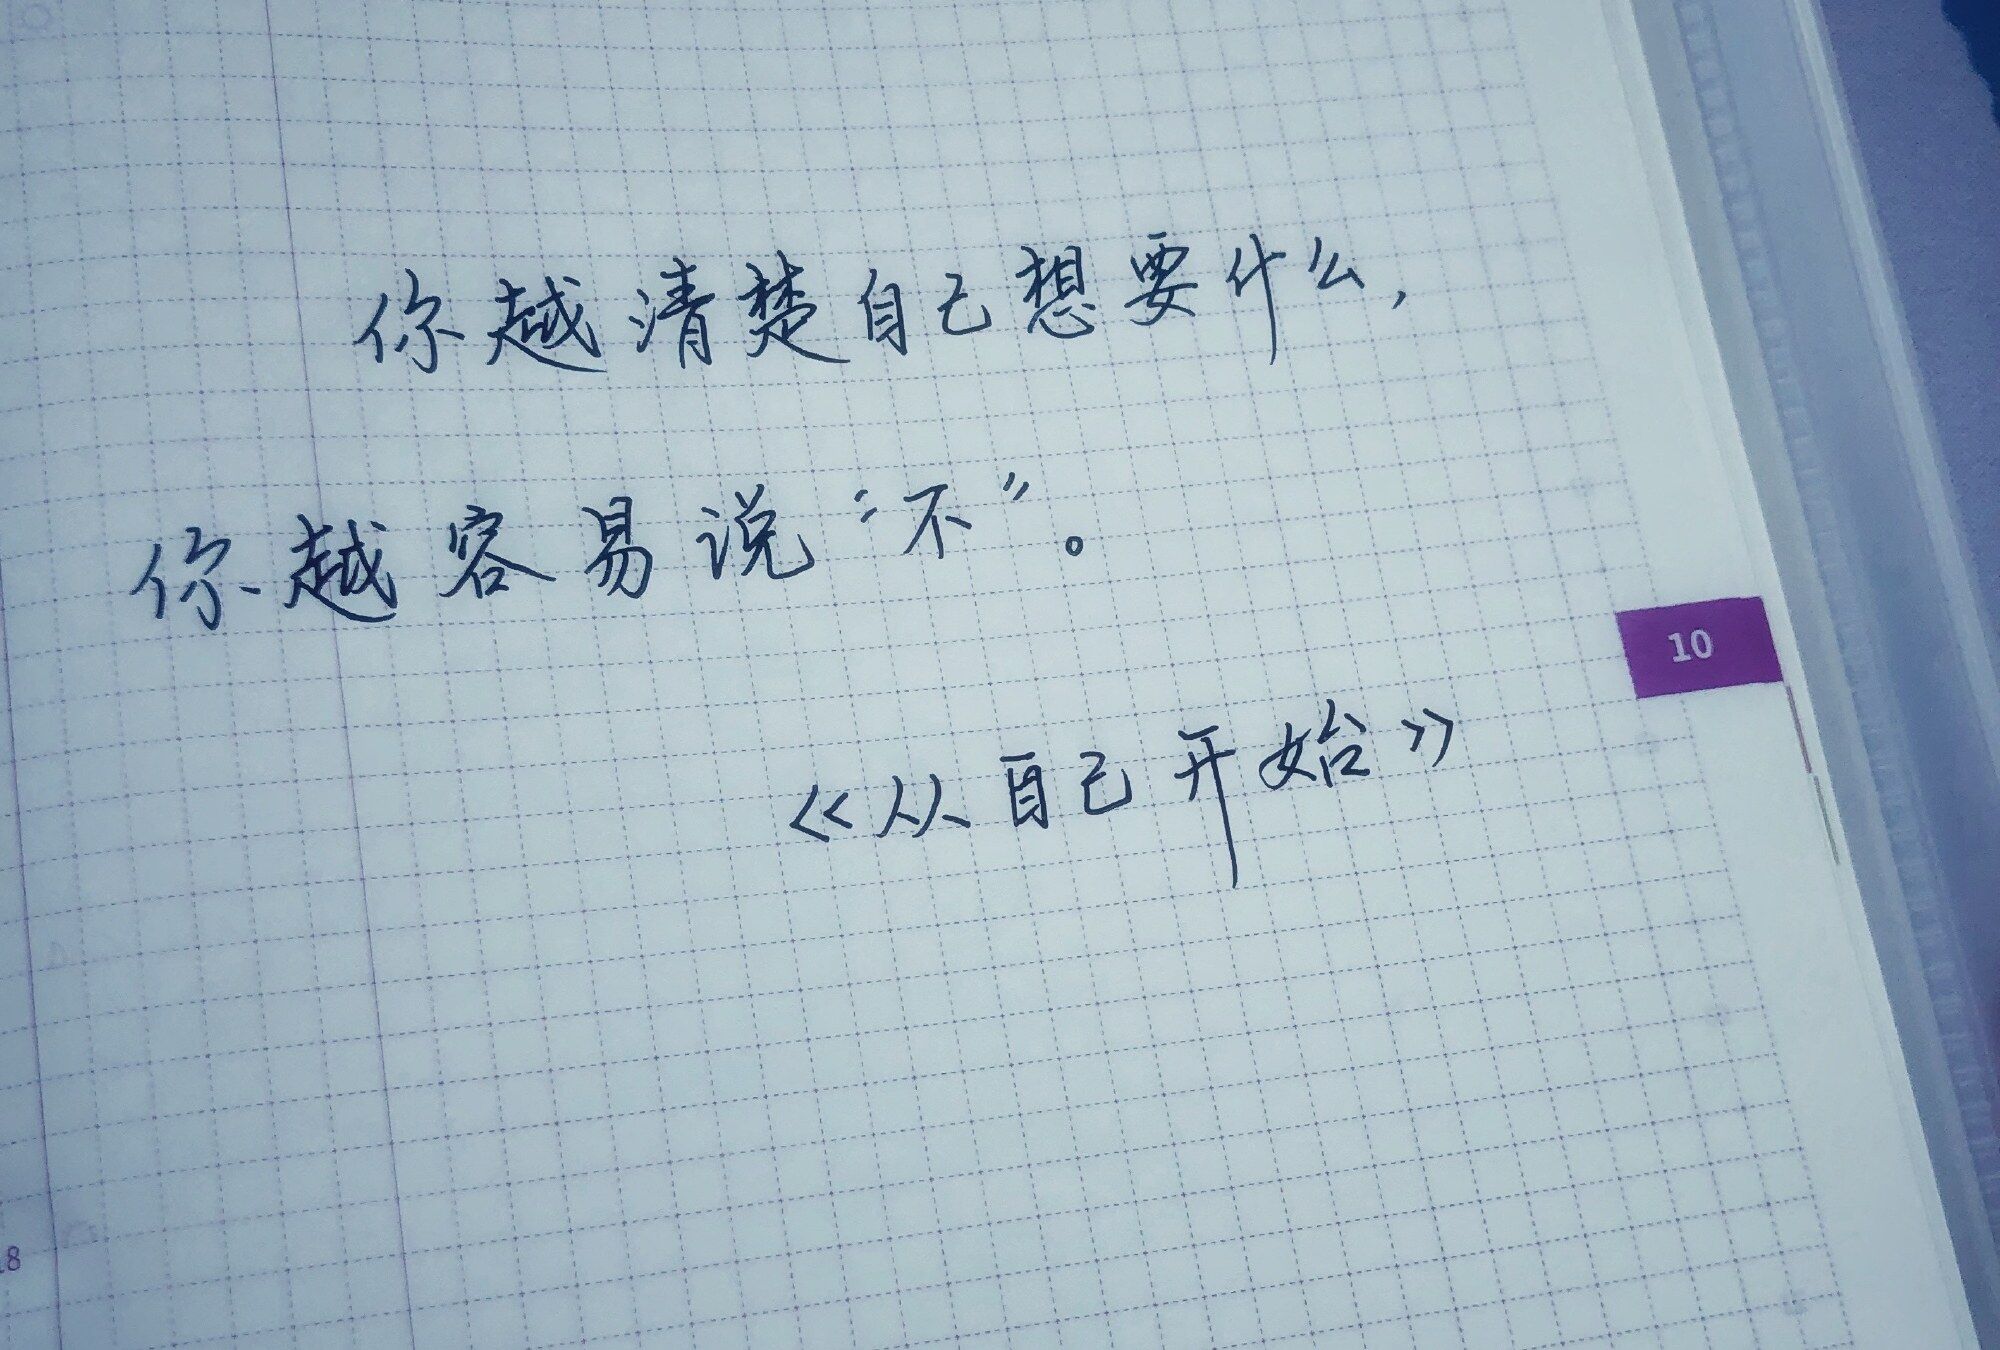 你越清楚自己想要什么,
你越容易说“不”。
10
《从自己开始》
18